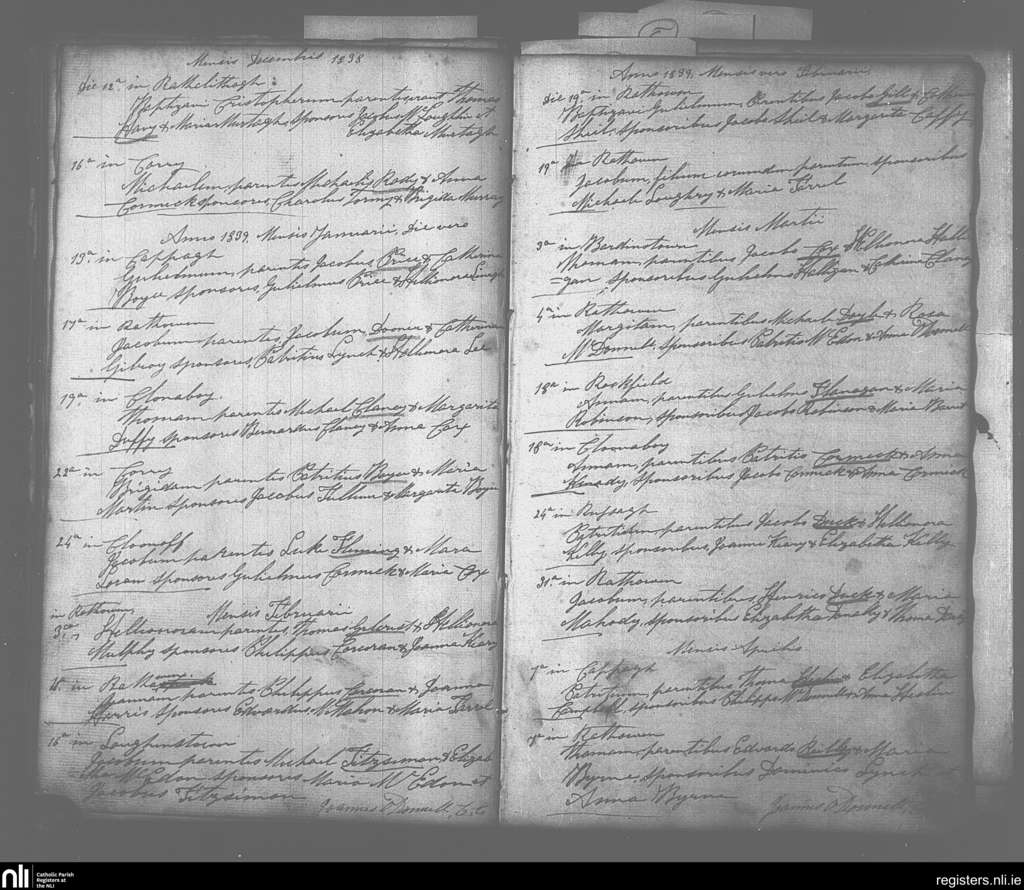 Mensis Decembris 1838
Die 12a in Rathclittagh
Baptizavi Cristopherum parentes erant Thomas
Havy & Maria Murtagh Sponsores Jacobus McLoughlin et
Elizabetha Murtagh
16a in Corry
Michaelem, parentes Michaelis Rody & Anna
Cormick sponsores, Charolus Tormy & Brigida Murray
Anno 1839, Mensis Januarii, die vero
13a in Cappagh
Gulielmum, parentes Jacobus Price & Catherina
Boyce sponsores, Gulielmus Price & Hellenora
17a in Rathowen
Jacobum parentes Jacobum Dooner & Catherina
Gilroy sponsores, Patritius Lynch & Hellenora Lee
19a in Clonaboy
Thomam parentes Michael Clancy & Margarita
Duffy sponsores Bernardus Clancy & Anna Cox
22a in Corry
Brigidam parentes Patritius Boyce & Maria
Martin sponsores Jacobus & Margarita Boyce
24a in
Jacobum parentes Luke Fleming & Mara
sponsores Gulielmus Cormick & Maria Cox
in Rathowen Mensis Februarii
3a Hellenoram parentes, Thomas & Hellenora
Mulphy sponsores Philippus Corcoran & Joanna Keary
in Rathowen
Joannam parentes Philippus Corcoran & Joanna
Harris sponsores Edwardus McMahon & Maria Farrel
16a in Loughinstown
Jacobum parentes Michael Fitzsimon & Elizab
etha McEdon sponsores Maria McEdon et
Jacobus Fitzsimon
Joannes O'Donnell, C.C.
Anno 1839, Mensis vero Februarii
die 19a in Rathowen
Baptizavi Gulielmum, parentibus Jacobo Gill &
Shiel, sponsoribus Jacobo Shiel & Margarita Caffry
19a Rathowen
Jacobum, filium eorundem parentum sponsoribus
Michaele Loughry & Maria Farrel
Mensis Martii
3a in Bardinstown
Thomam, parentibus Jacobo Cox & Hellenora Halli
=gan sponsoribus Gulielmo Halligan & Clancy
4a in Rathowen
Margitam, parentibus Michaele Doyle & Rosa
McDonnell, sponsoribus Patritio McEdon & Anna
18a in Rockfield
Annam, parentibus Gulielmo Flanagan & Maria
Robinson, sponsoribus Jacobo Robinson & Maria
18a in Cloonaboy
Annam, parentibus Patritio Cormick & Anna
Kenedy, Sponsoribus Jacobo Cormick & Anna Cormick
24a in Rupagh
Patritium parentibus Jacobo Duck & Hellenora
Kelly sponsoribus, Joanne Keary & Elizabetha Kelly
31a in Rathowen
Jacobum, parentibus Henrico Duck & Maria
Mahody, sponsoribus Elizabetha & Thoma
Mensis Aprilis
7a in Cappagh
Patritium, parentibus Thoma & Elizabetha
Campbell sponsoribus Philippo & Anna
8a in Rathowen
Thomam, parentibus Edwardo Reilly & Maria
Byrne, Sponsoribus Dominico Lynch et
Anna Byrne
Joannes O'Donnell,
nli
Catholic Parish
Registers at
the NLI
registers.nli.ie